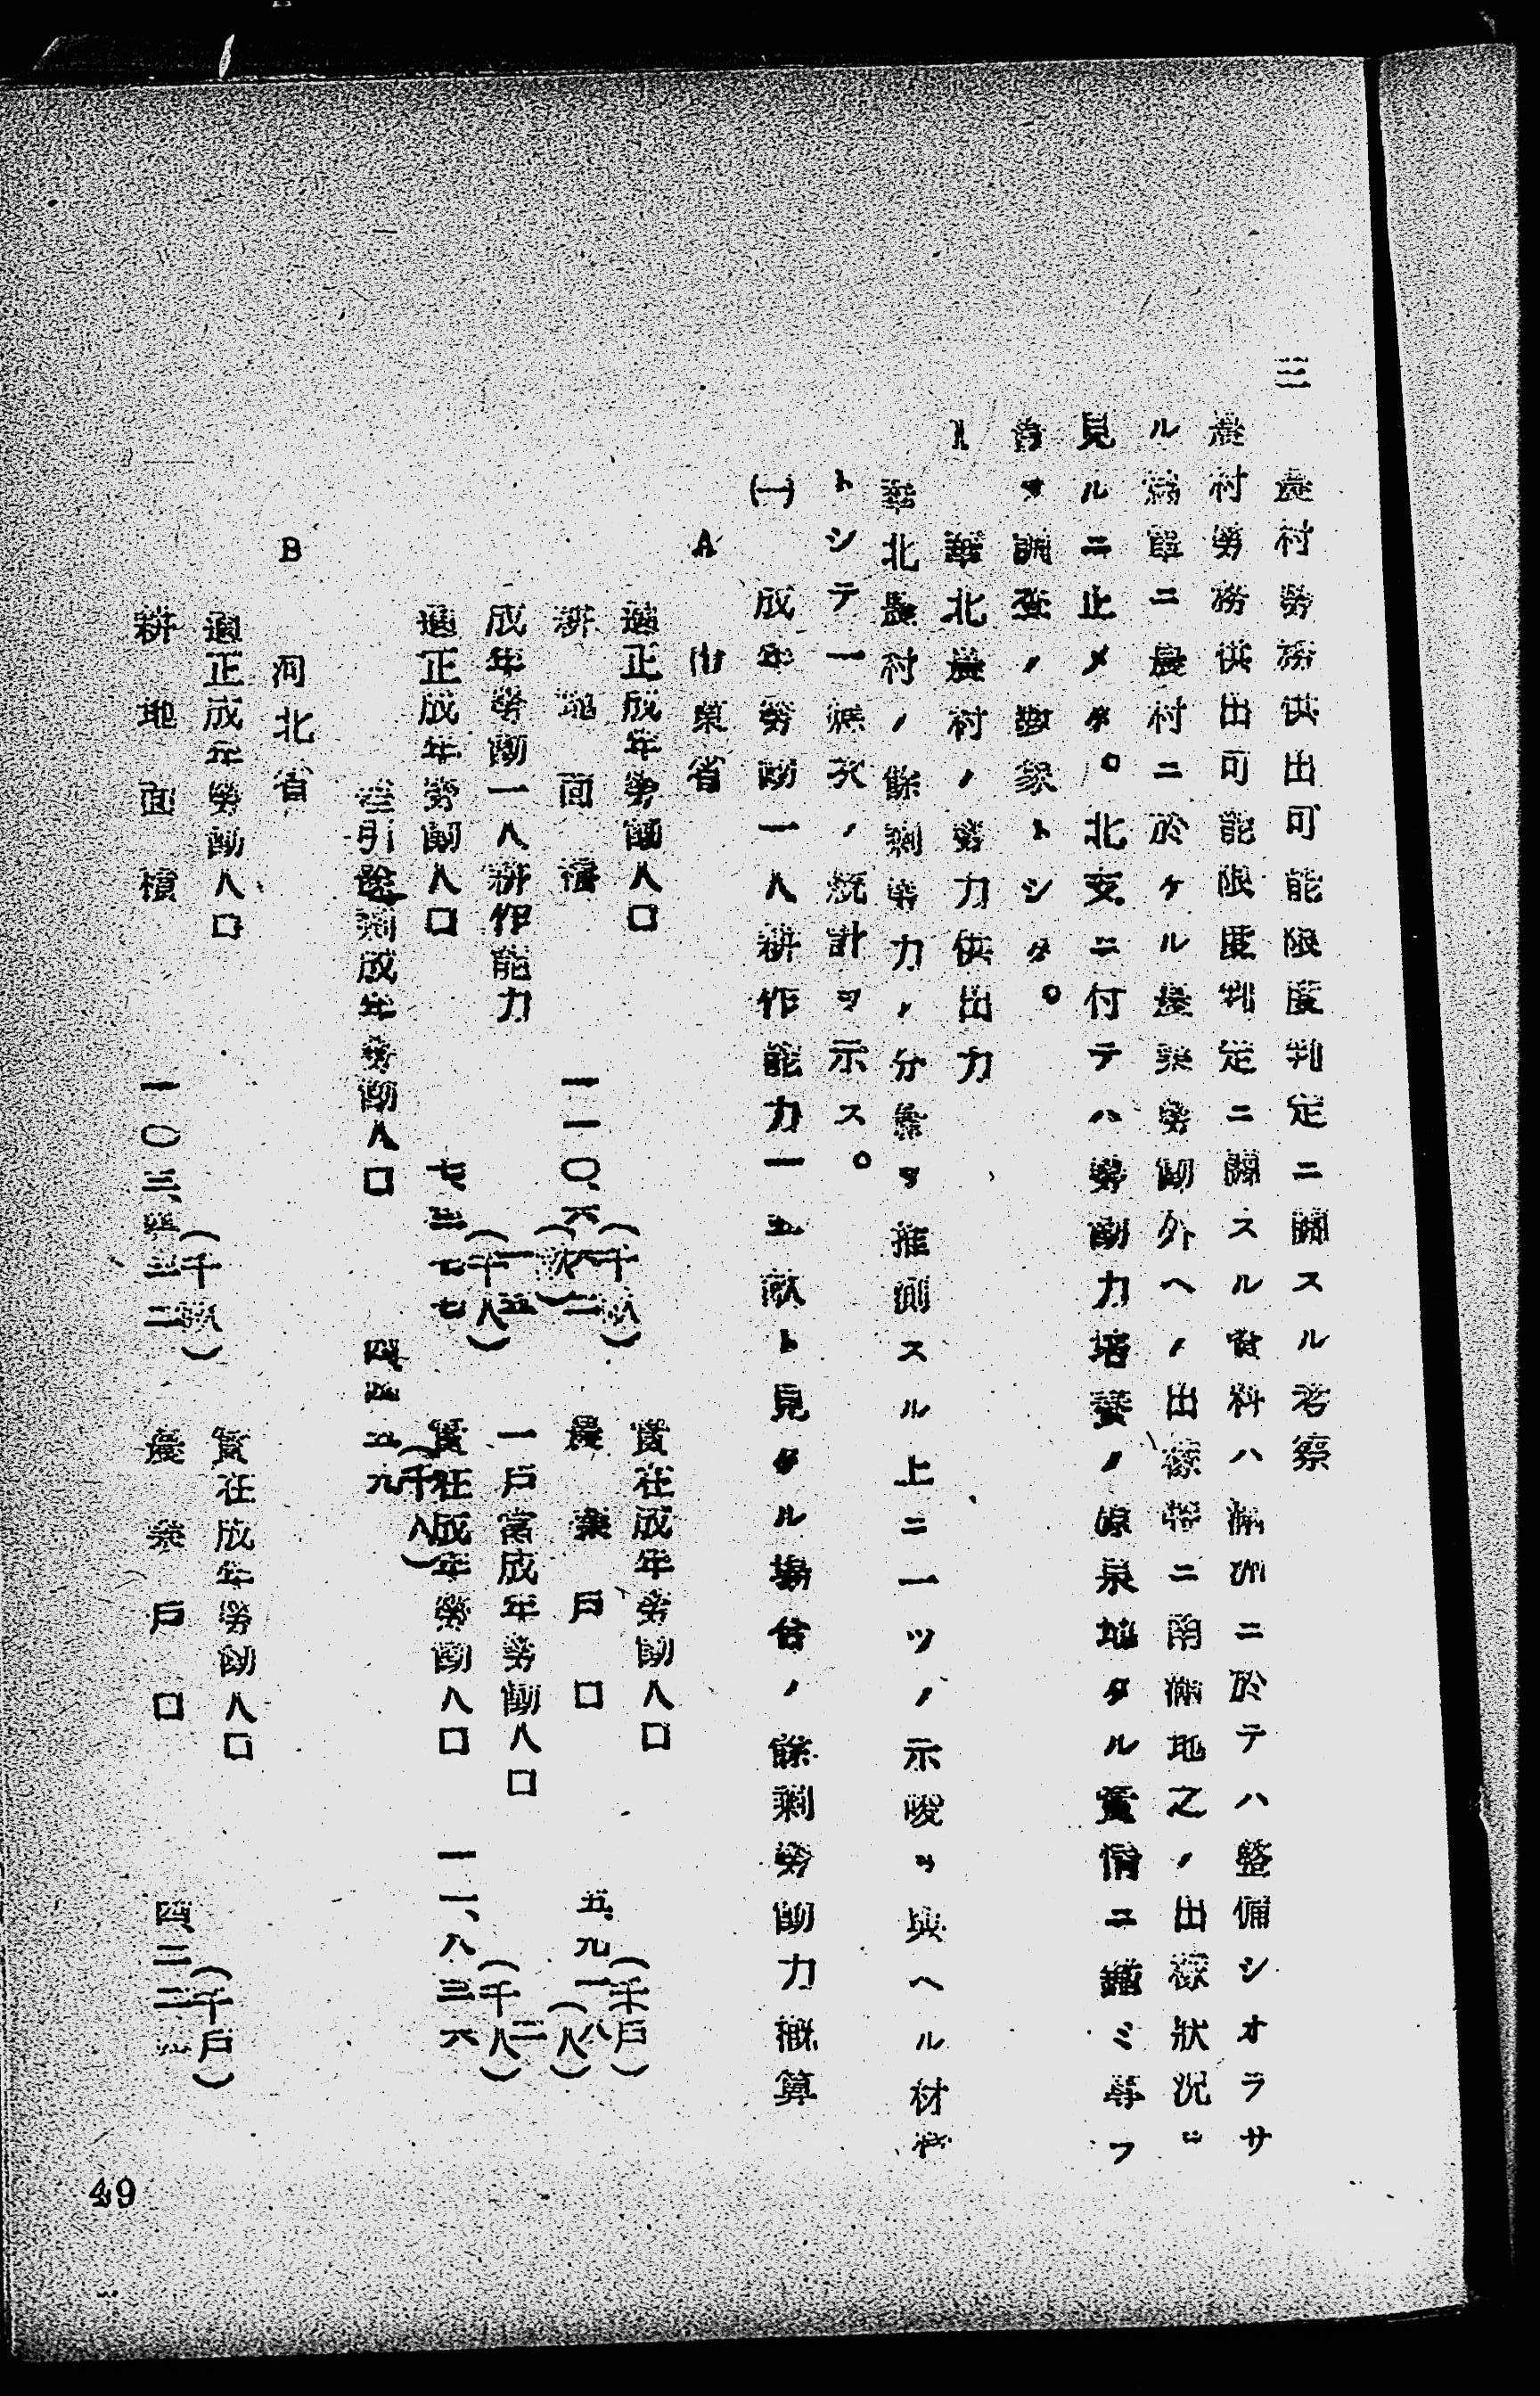 三　農村勞務供出可能限度判定ニ關スル考察
農村勞務供出可能限度判定ニ關スル資料ハ滿洲ニ於テハ整備シオラサ
ル為單ニ農村ニ於ケル農業勞働外ヘノ出稼並ニ南滿地之ノ出稼狀況ヲ
見ルニ止メタ。北支ニ付テハ勞働力培養ノ源泉地タル實情ニ鑑ミ專フ
省ヲ調査ノ對象トシタ。
1　華北農村ノ勞力供出力
華北農村ノ餘剩勞力ノ分析ヲ推測スル上ニ一ツノ示唆ヲ與ヘル材料
トシテ一應次ノ統計ヲ示ス。
(一)　成年勞働一人耕作能力一五畝ト見タル場合ノ餘剩勞働力概算
A　山東省
適正成年勞働人口　實在成年勞働人口
耕地面積　一一〇、六八二（千畝）　農業戶口　五、九一八（千戶）
成年勞働一人耕作能力　一五（畝）　一戶當成年勞働人口　二（人）
適正成年勞働人口　七、三七七（千人）　實在成年勞働人口　一一、八三六（千人）
差引餘剩成年勞働人口　四、四五九（千人）
B　河北省
適正成年勞働人口　實在成年勞働人口
耕地面積　一〇三、四三二（千畝）　農業戶口　四、二二（千戶）
49